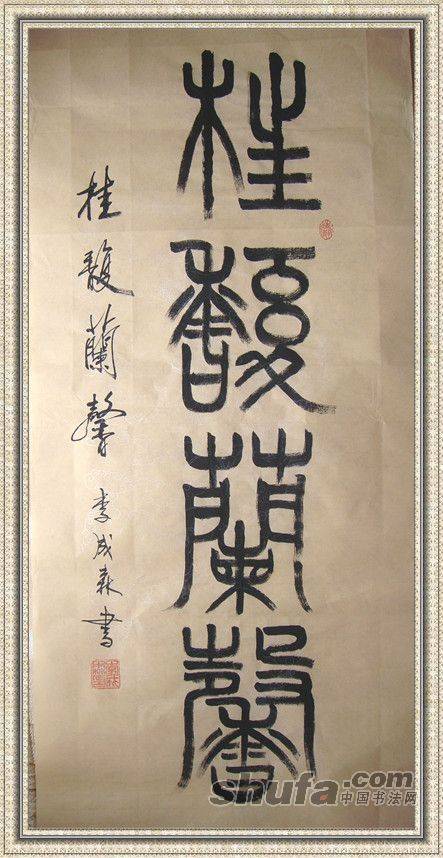 桂馥蘭馨
桂馥蘭馨 李成森書
shufa.com
中国书法网